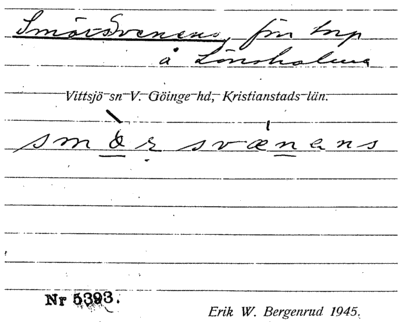 Smörsvenens, förr torp
å Lönsholma
Vittsjö sn V. Göinge hd, Kristianstads län.
smör svænens
Nr 5393.
Erik W. Bergenrud 1945.